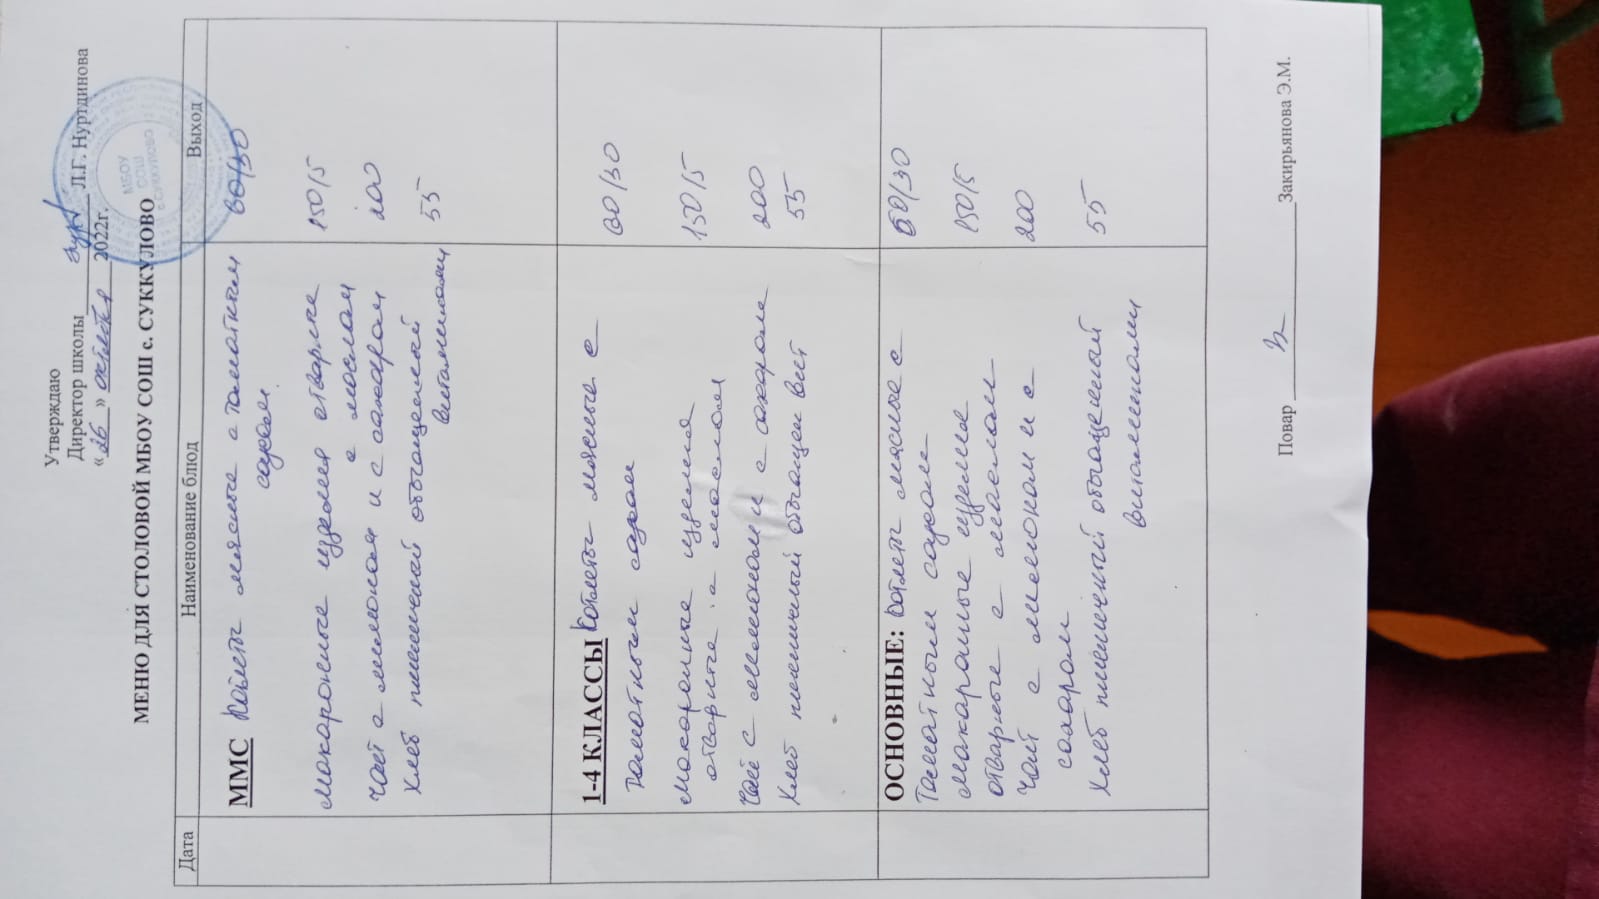 Утверждаю
Директор школы Л.Г. Нуртдинова
« 26 » октября 2022г.
МБОУ
СОШ
с.СУККУЛОВО
МЕНЮ ДЛЯ СТОЛОВОЙ МБОУ СОШ с. СУККУЛОВО
Дата Наименование блюд Выход
ММС Котлеты мясные с томатным 60/30
соусом
макаронные изделия отварные 150/5
с маслом
чай с молоком и с сахаром 200
Хлеб пшеничный обогащенный 55
витаминами
1-4 КЛАССЫ Котлеты мясные с
томатным соусом 60/30
макаронные изделия 150/5
отварные с маслом
Чай с молоком и с сахаром 200
Хлеб пшеничный обогащен вит 55
ОСНОВНЫЕ: Котлеты мясные с 60/30
Томатным соусом
макаронные изделия 150/5
отварные с маслом
Чай с молоком и с 200
сахаром
Хлеб пшеничный обогащенный 55
витаминами
Повар Закирьянова Э.М.